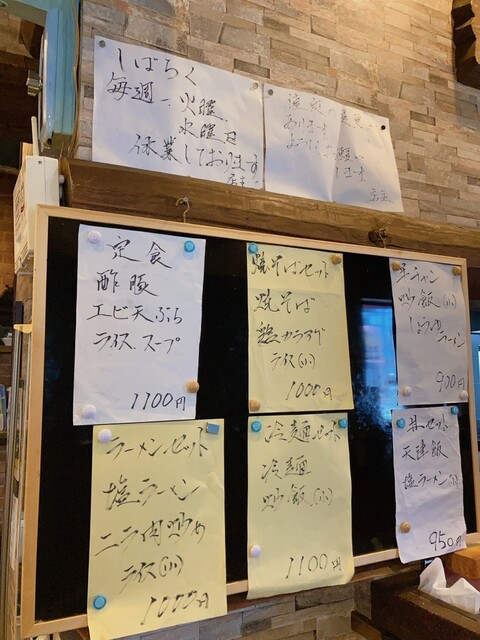 しばらく
毎週、火曜、
水曜日
休業しております
店主
店主
定食
酢豚
エビ天ぷら
ライス.スープ
1100円
焼そばセット
焼そば
鶏カラアゲ
ライス(小)
1000円
炒飯(小)
しょうゆ
ラーメン
900円
ラーメンセット
塩ラーメン
ニラ肉炒め
ライス(小)
1000円
冷麺セット
冷麺
炒飯(小)
1100円
丼セット
天津飯
塩ラーメン(小)
950円